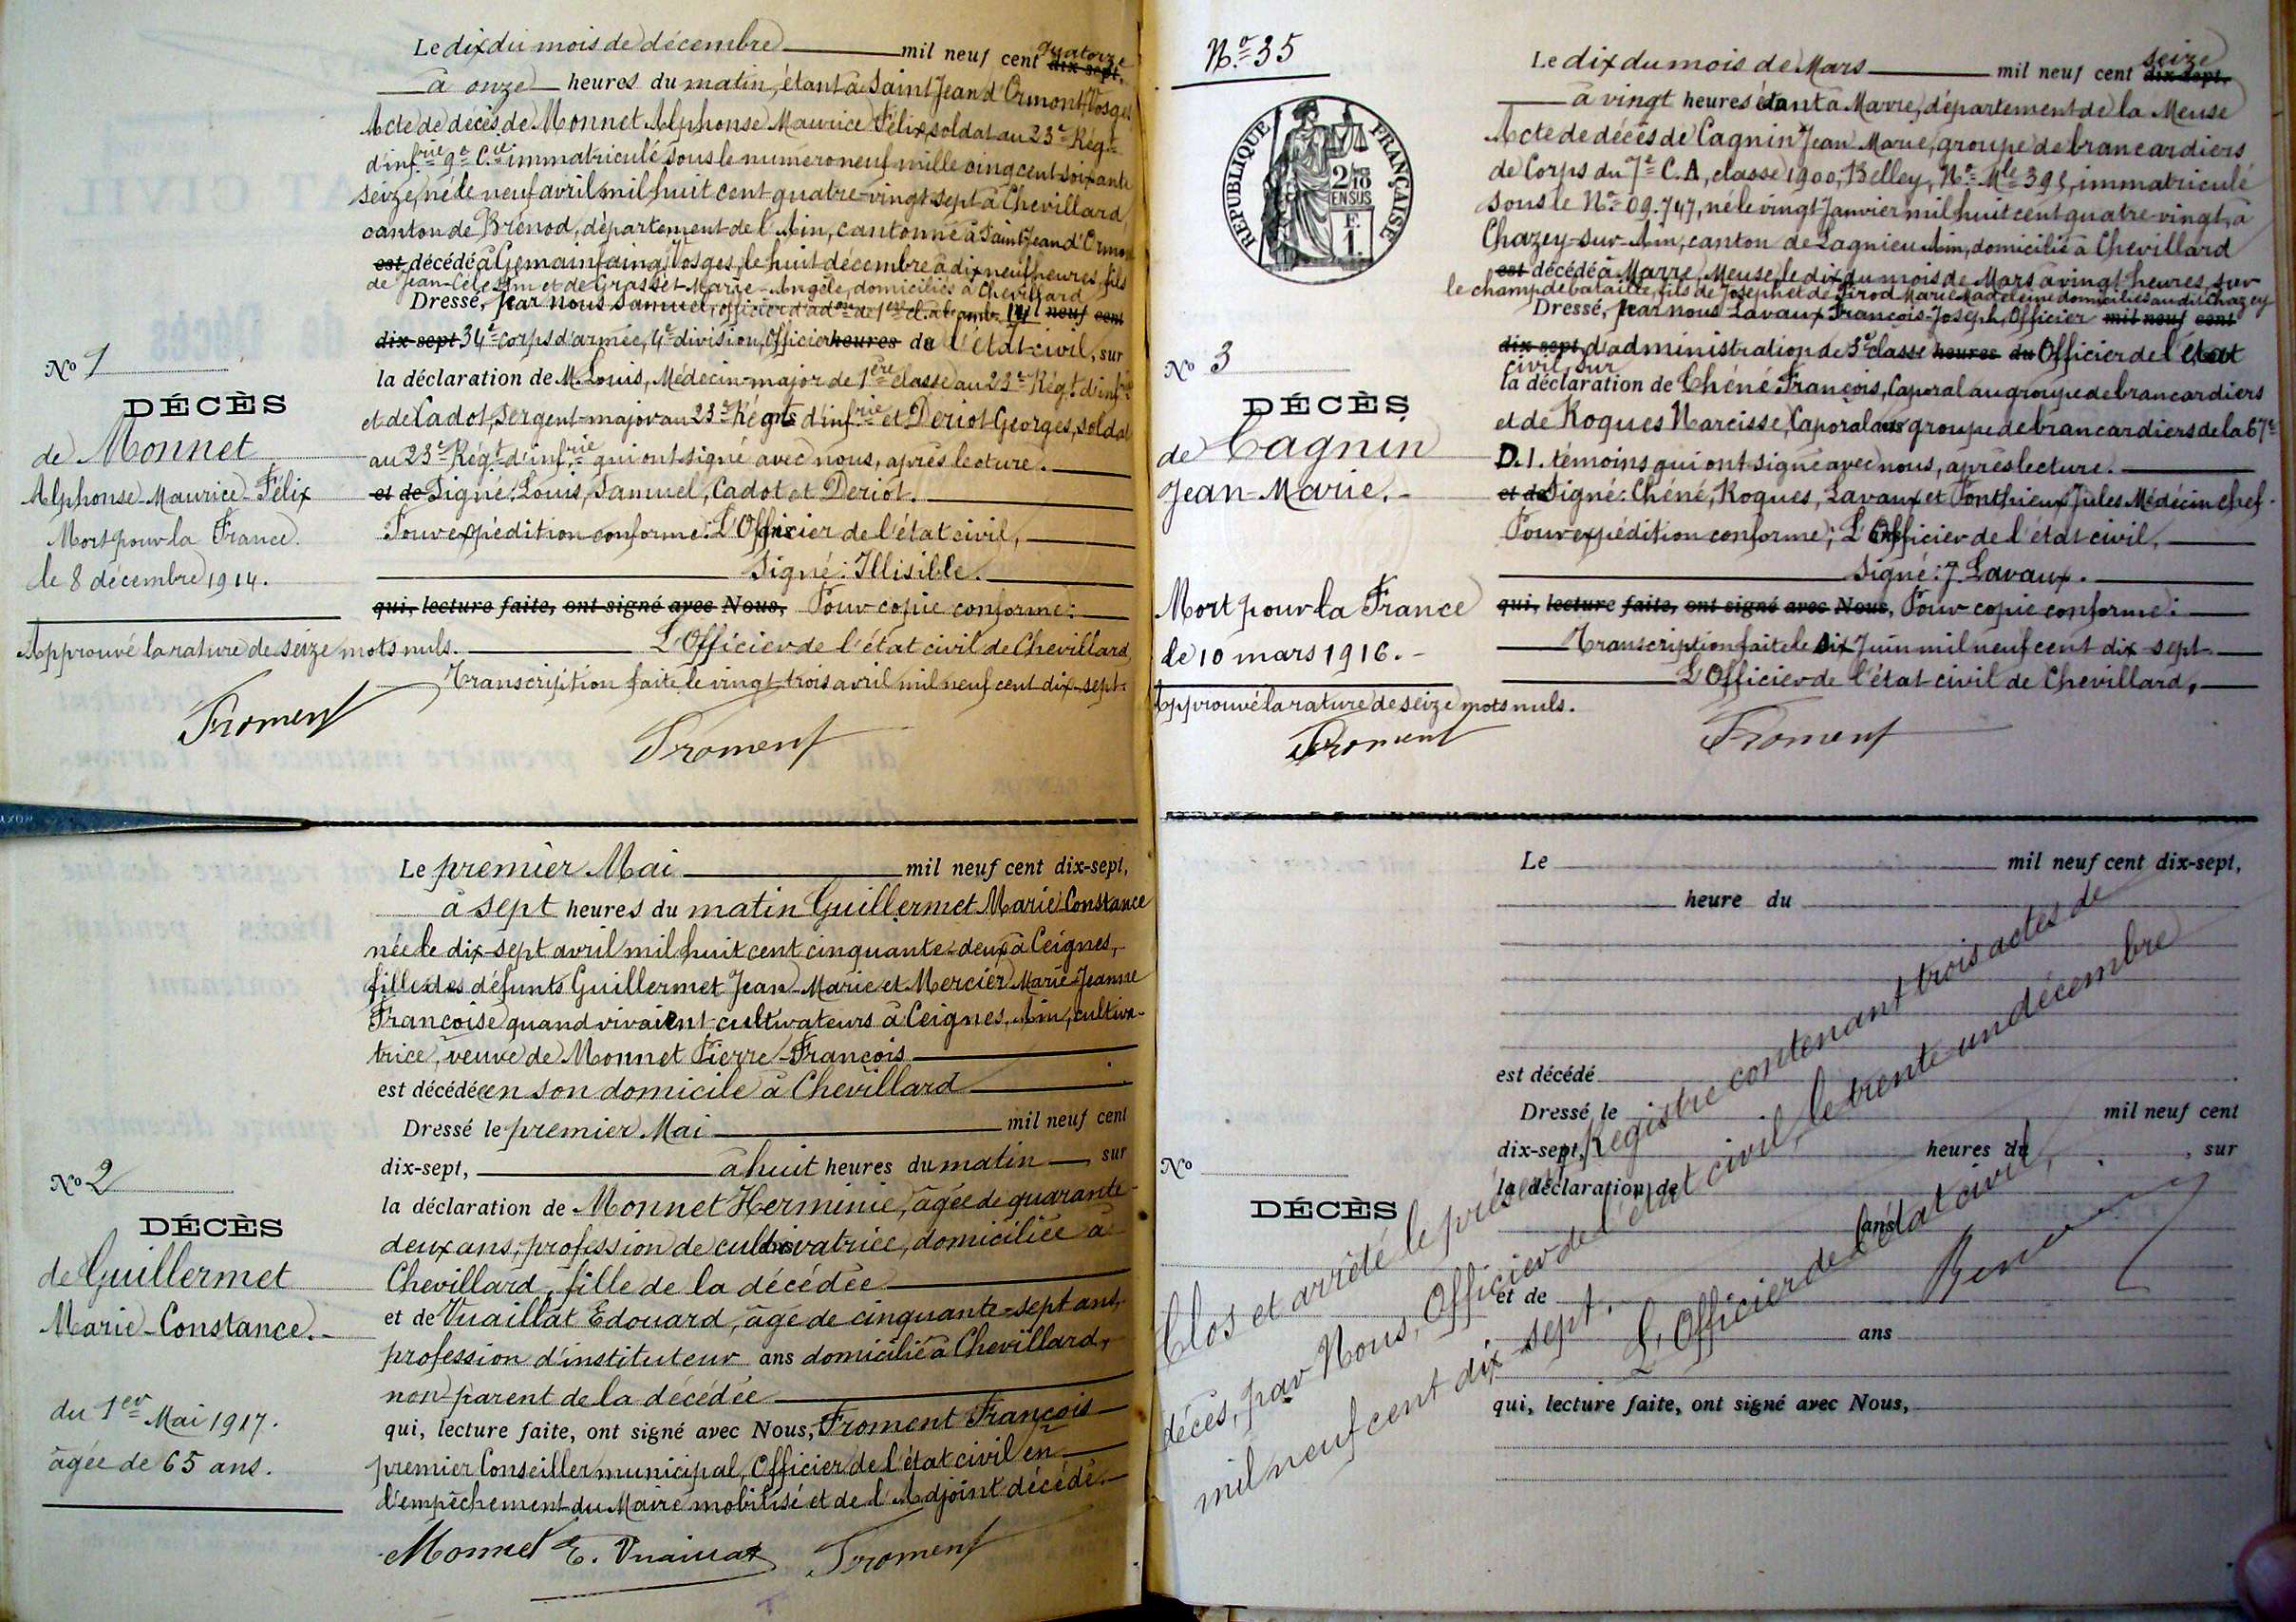 Le dix du mois de décembre mil neuf cent quatorze dix-sept,
à onze heures du matin, étant à Saint Jean d'Ormont Vosges
Acte de décès de Monnet Alphonse Maurice Félix soldat au 23e Rég.t
d'inf.rie 9e C.ie immatriculé sous le numéro neuf mille cinq cent soixante
seize, né le neuf avril mil huit cent quatre-vingt sept à Chevillard,
canton de Brénod, département de l'Ain, cantonné à Saint Jean d'Ormont
est décédé à Gemainfaing, Vosges, le huit décembre à dix neuf heures, fils
de Jean-Célestin et de Grasset Marie-Angèle, domiciliés à Chevillard
Dressé, par nous Samuel, officier d'ad.on de 1ère cl. à l'amb. 14 mil neuf cent
dix-sept 34e corps d'armée, 4e division, Officier heures du de l'état-civil, sur
la déclaration de M. Louis, Médecin-major de 1ère classe au 23e Rég.t d'inf.rie
et de Cadot, Sergent-major au 23e Rég.t d'inf.rie et Deriot Georges, soldat
au 23e Rég.t d'inf.rie qui ont signé avec nous, après lecture.
et de Signé: Louis, Samuel, Cadot et Deriot.
Pour expédition conforme: L'Officier de l'état civil,
Signé: Illisible.
qui, lecture faite, ont signé avec Nous, Pour copie conforme:
L'Officier de l'état civil de Chevillard,
Transcription faite le vingt-trois avril mil neuf cent dix-sept.
Froment
No 1
DÉCÈS
de Monnet
Alphonse-Maurice-Félix
Mort pour la France
le 8 décembre 1914.
Approuvé la rature de seize mots nuls.
Froment
Le premier Mai mil neuf cent dix-sept,
à sept heures du matin Guillermet Marie Constance
née le dix-sept avril mil huit cent cinquante-deux à Ceignes,
fille des défunts Guillermet Jean-Marie et Mercier Marie-Jeanne
Françoise quand vivaient cultivateurs à Ceignes, Ain, cultiva-
trice, veuve de Monnet Pierre-François
est décédée en son domicile à Chevillard
Dressé le premier Mai mil neuf cent
dix-sept, à huit heures du matin, sur
la déclaration de Monnet Herminie, âgée de quarante-
deux ans, profession de cultivatrice, domiciliée à
Chevillard, fille de la décédée
et de Vuaillat Edouard, âgé de cinquante-sept ans,
profession d'instituteur ans domicilié à Chevillard,
non parent de la décédée
qui, lecture faite, ont signé avec Nous, Froment François
premier Conseiller municipal, Officier de l'état civil en
l'empêchement du Maire mobilisé et de l'Adjoint décédé.
Monnet E. Vuaillat Froment
No 2
DÉCÈS
de Guillermet
Marie-Constance.
du 1er Mai 1917.
âgée de 65 ans.
No 35
RÉPUBLIQUE FRANÇAISE
2/10 EN SUS
F.
1.
Le dix du mois de Mars mil neuf cent seize dix-sept,
à vingt heures étant à Marre, département de la Meuse
Acte de décès de Cagnin Jean Marie, groupe de brancardiers
de Corps du 7e C.A, classe 1900, Belley, No Mle 391, immatriculé
sous le No 09.747, né le vingt Janvier mil huit cent quatre-vingt, à
Chazey-sur-Ain, canton de Lagnieu Ain, domicilié à Chevillard
est décédé à Marre, Meuse, le dix du mois de Mars à vingt heures, sur
le champ de bataille, fils de Joseph et de Pirod Marie Madeleine domiciliés audit Chazey
Dressé, par nous Lavaux François-Joseph, Officier mil neuf cent
dix-sept, d'administration de 3e classe heures du Officier de l'état
civil, sur
la déclaration de Chéné François, Caporal au groupe de brancardiers
et de Roques Narcisse, Caporal au groupe de brancardiers de la 67e
D.I. témoins qui ont signé avec nous, après lecture.
et de Signé: Chéné, Roques, Lavaux et Ponthieux Jules Médecin chef.
Pour expédition conforme; L'Officier de l'état civil,
Signé: J. Lavaux.
qui, lecture faite, ont signé avec Nous, Pour copie conforme:
Transcription faite le dix Juin mil neuf cent dix-sept
L'Officier de l'état-civil de Chevillard,
Froment
No 3
DÉCÈS
de Cagnin
Jean-Marie.
Mort pour la France
le 10 mars 1916.
Approuvé la rature de seize mots nuls.
Froment
Le mil neuf cent dix-sept,
heure du
est décédé
Dressé, le mil neuf cent
dix-sept, heures du , sur
la déclaration de
ans
et de
ans
qui, lecture faite, ont signé avec Nous,
No
DÉCÈS
Clos et arrêté le présent Registre contenant trois actes de
décès, par Nous, Officier de l'état civil, le trente un décembre
mil neuf cent dix sept.
L'Officier de l'état civil,